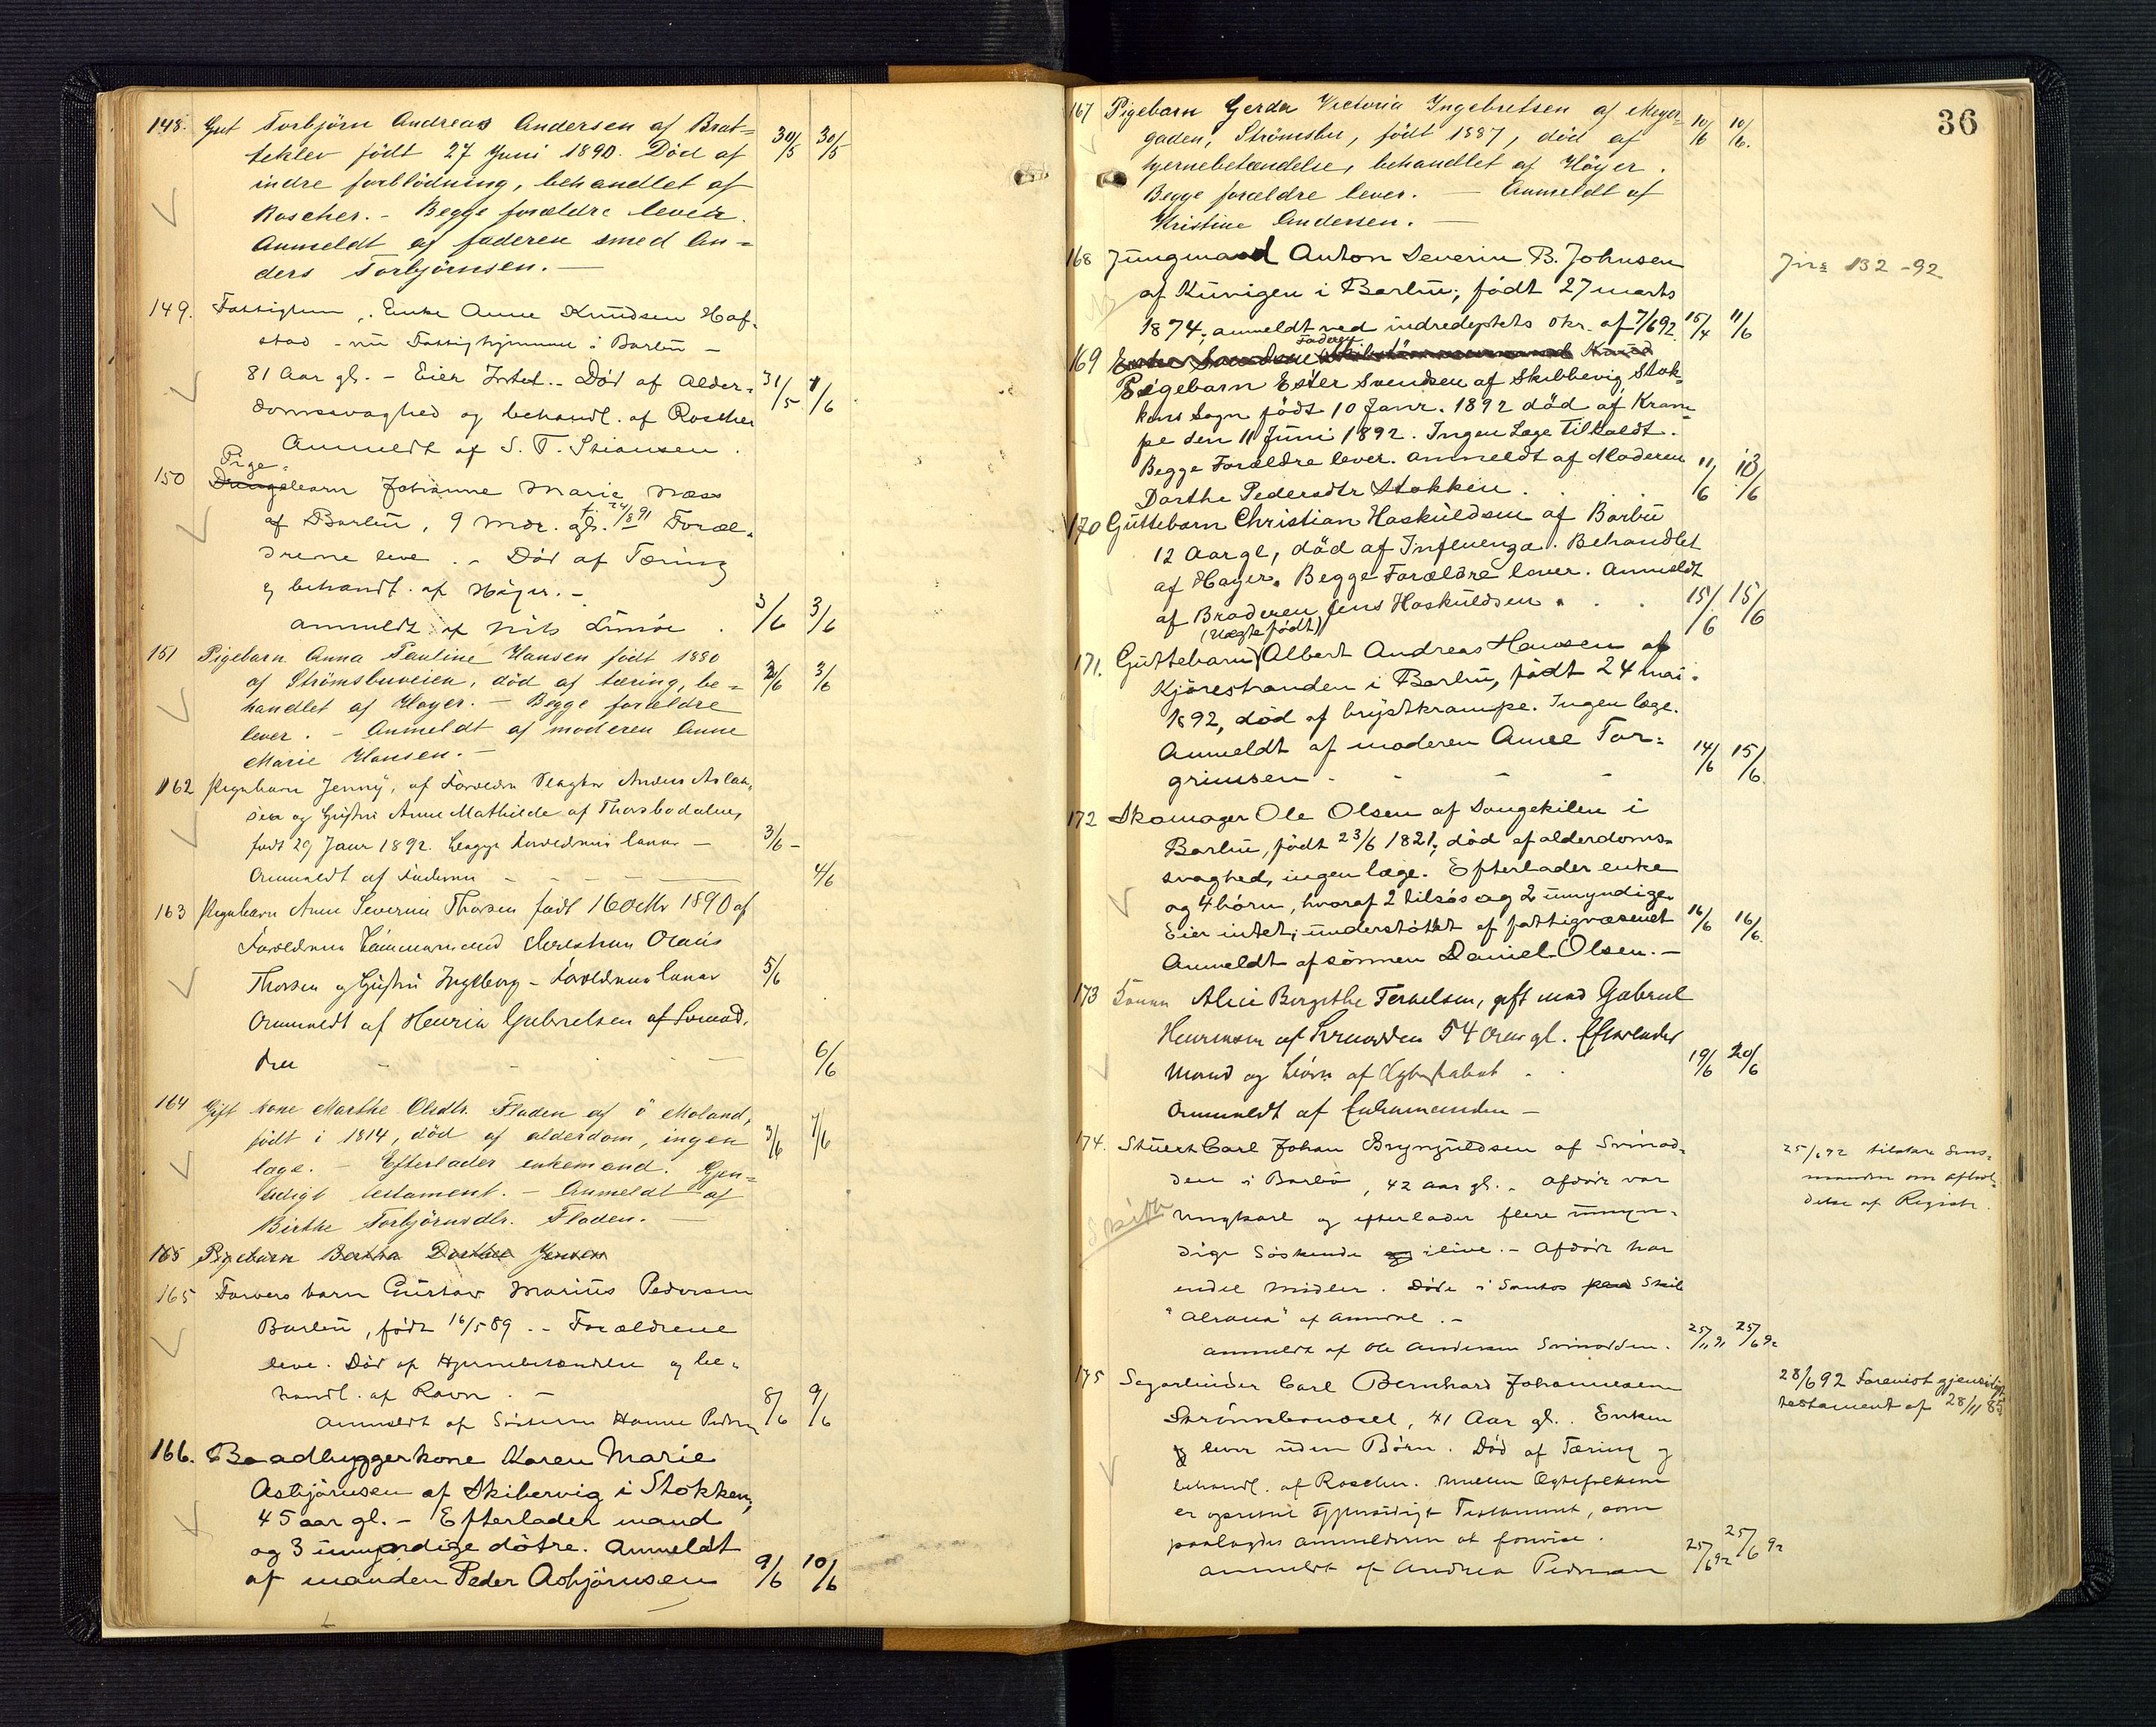 148. Gut Torbjörn Andreas Andersen af Brat=
teklev født 27 Juni 1890. Död af 30/5 30/5
indre forblödning, behandlet af
Roscher. - Begge forældre lever.
Anmeldt af faderen smed An=
ders Torbjörnsen. -
149. Fattiglem, Enke Anne Knudsen Haf-
stad - nu Fattighjemmet i Barbu -
81 Aar gl. - Eier Intet. - Död af Alder- 31/5 1/6
domssvaghed og behandl. af Roscher
Anmeldt af S. T. Stiansen.
Pige
150 Drengebarn Johanne Marie Næss
af Barbu, 9 Mdr. gl. f. 24/8 91 Foræl-
drene leve. - Död af Tæring
og behandl. af Höyer. -
Anmeldt af Nils 3/6 3/6
151 Pigebarn Anna Pauline Hansen født 1880
af Strömsbuveien, död af tæring, be= 2/6 3/6
handlet af Höyer. - Begge forældre
lever. - Anmeldt af moderen Anne
Marie Hansen. -
162 Pigebarn Jenny, af Forældre Anders Aslak-
sen og Hustru Anne Mathilde af Thorsbudalen,
født 29 Janr 1892. Begge Forældrene lever - 3/6 -
Anmeldt af Faderen - 4/6
163 Pigebarn Anne Severine Thorsen født 16 Octbr 1890 af
Forældrene Tömmermand Christian Olaus
Thorsen og Hustru Ingeborg - Forældrene lever 5/6
Anmeldt af Henrik Gabrielsen af Svinod-
den - 6/6
164 Gift kone Marthe Olsdtr. Fladen af Ö Moland,
født i 1814, död af alderdom, ingen 3/6 7/6
læge. - Efterlader enkemand. Gjen=
sidigt testament. - Anmeldt af
Birthe Torbjörnsdtr. Fladen. -
165 Pigebarn Bertha Dorthea Jensen
165 Farvers barn Gustav Marius Pedersen
Barbu, født 16/5 89. - Forældrene
leve. Död af Hjernebetændelse og be-
handl. af Ravn. - 8/6 9/6
Anmeldt af Sösteren Hanne Pedersen
166. Baadbyggerkone Karen Marie
Asbjörnsen af Skibervig i Stokken,
45 aar gl. - Efterlader mand
og 3 umyndige døtre. Anmeldt
af manden Peder Asbjörnsen 9/6 10/6
36
167 Pigebarn Gerda Victoria Ingebretsen af Meyer- 10/6 10/6.
gaden, Strömsbu, født 1887, död af
hjernebetændelse, behandlet af Höyer.
Begge forældre lever. - Anmeldt af
Kristine Andersen. -
168 Jungmand Anton Severin B. Johnsen Jnr 132 - 92
af Kuvigen i Barbu, født 27 marts
1874, anmeldt ved indredeptets skr. af 7/6 92 15/4 11/6
Faderen
169 Ester Svendsen
Pigebarn Ester Svendsen af Skibbevig, Stok-
kens Sogn født 10 Janr. 1892 död af Kram-
pe den 11 Juni 1892. Ingen Læge tilkaldt.
Begge Forældre lever. Anmeldt af Moderen 11/6 13/6
Dorthe Pedersdtr Stokken.
170 Guttebarn Christian Haskuldsen af Barbu
12 Aar gl, död af Influenza. Behandlet
af Høyer. Begge Forældre lever. Anmeldt
af Broderen Jens Haskuldsen. 15/6 15/6
(uægte født)
171. Guttebarn Albert Andreas Hansen af
Kjörestranden i Barbu, født 24 mai
1892, död af brystkrampe. Ingen læge.
Anmeldt af moderen Anne Tor= 14/6 15/6
grimsen -
172 Skomager Ole Olsen af Songekilen i
Barbu, født 23/6 1821, död af alderdoms-
svaghed, ingen læge. Efterlader enke
og 4 börn, hvoraf 2 tilsøs og 2 umyndige.
Eier intet; understöttet af fattigvæsenet 16/6 16/6.
Anmeldt af sönnen Daniel Olsen. -
173 Konen Alice Birgithe Terkelsen, gift med Gabriel
Henriksen af Svinodden 54 Aar gl. Efterlader
Mand og Börn af Ægteskabet. 19/6 20/6
Anmeldt af Enkemanden -
174. Stuert Carl Johan Brynguldsen af Svinod- 25/6 92 tilskr. Lens-
den i Barbo, 42 aar gl. - Afdöde var manden om afhol-
ungkarl og efterlader flere umyn- delse af Registr.
Skifte
dige Söskende og ilive. - Afdöde har
endel midler. Döde i Santos paa Skib
"Alrana" af Arendal. -
Anmeldt af Ole Andersen Svinodden. 25/11 91 25/6 92
175 Sagarbeider Carl Bernhard Johannesen 28/6 92 Forevist gjensidigt
Strömsbuaasen, 41 Aar gl. Enken testament af 28/11 85
lever uden Börn. Död af Tæring og
behandl. af Roscher. Mellem Ægtefolkene
er oprettet Gjensidigt Testament, som
paalagdes anmelderen at forevise.
Anmeldt af Andrea Pedersen 25/6 92 25/6 92